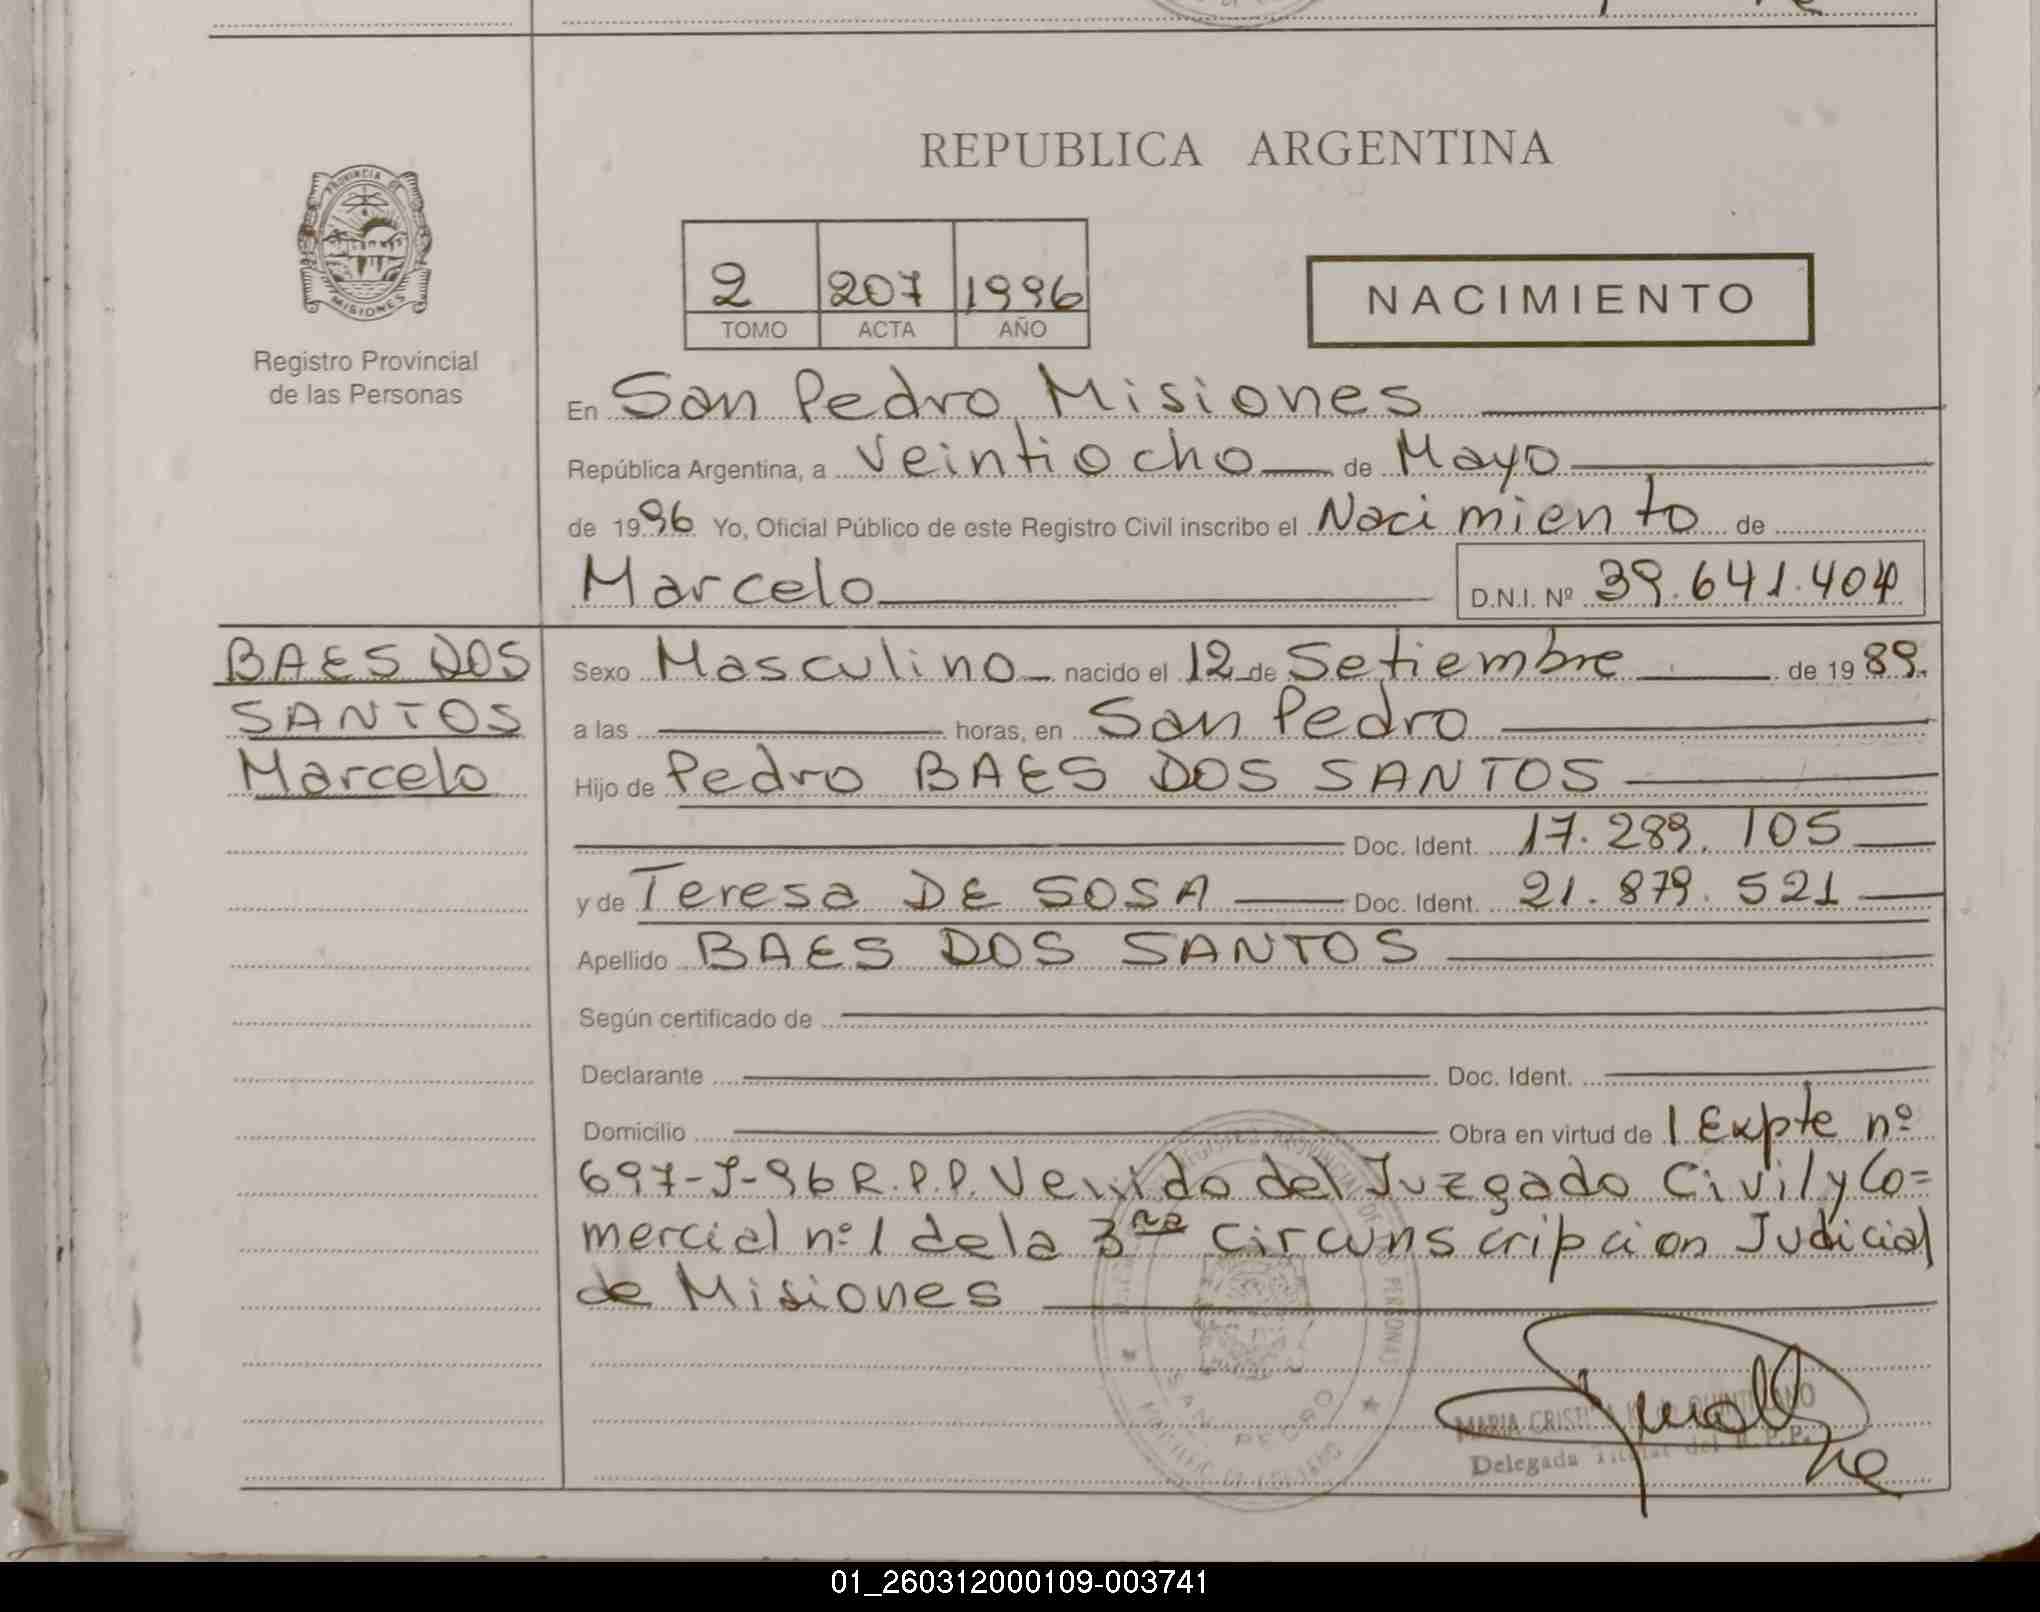 REPUBLICA ARGENTINA
PROVINCIA DE
MISIONES
Registro Provincial
de las Personas
2 207 1996
TOMO ACTA AÑO
NACIMIENTO
En San Pedro Misiones
República Argentina, a Veintiocho de Mayo
de 1996 Yo, Oficial Público de este Registro Civil inscribo el Nacimiento de
Marcelo D.N.I. Nº 39.641.404
BAES DOS
SANTOS
Marcelo
Sexo Masculino nacido el 12 de Setiembre de 1989.
a las horas, en San Pedro
Hijo de Pedro BAES DOS SANTOS
Doc. Ident. 17.289.105
y de Teresa DE SOSA Doc. Ident. 21.879.521
Apellido BAES DOS SANTOS
Según certificado de
Declarante Doc. Ident.
Domicilio Obra en virtud de 1 Expte nº
697-J-96 R.P.P. Venido del Juzgado Civil y Co=
mercial nº 1 de la 3ra Circunscripcion Judicial
de Misiones
SAN PEDRO
MARIA CRISTINA QUINTILIANO
Delegada Titular del R.P.P.
01_260312000109-003741